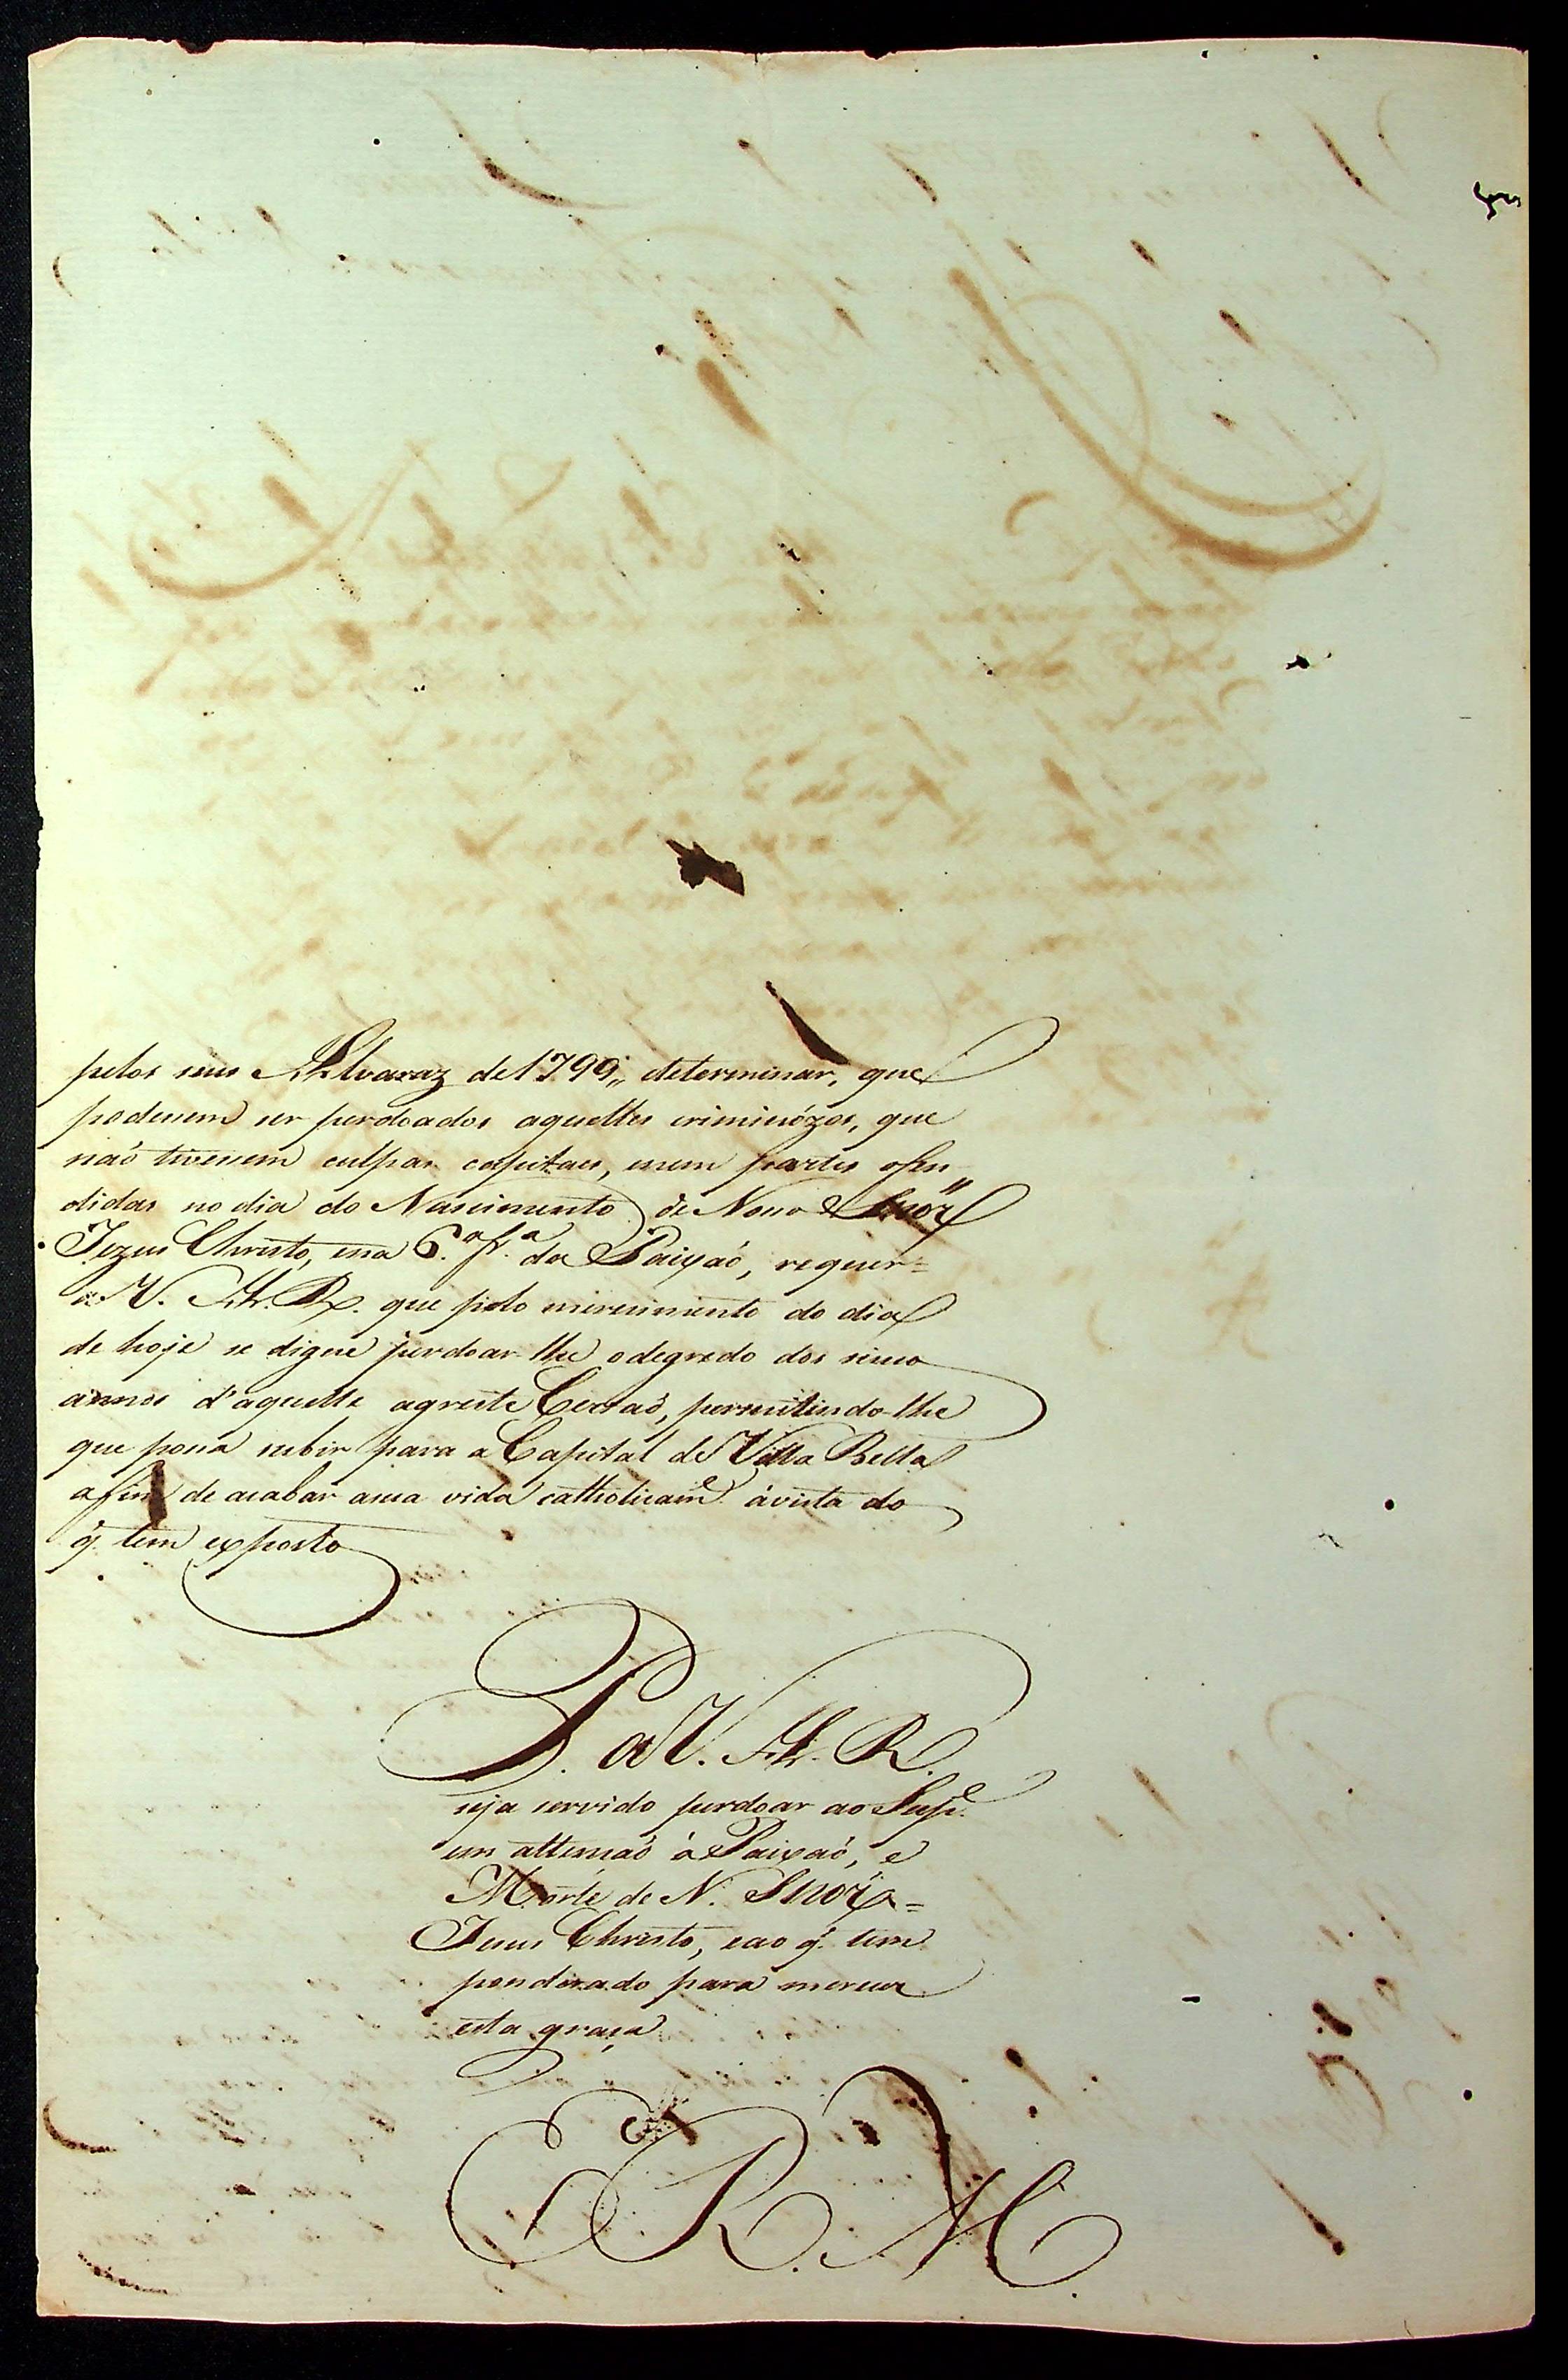 pelos seus Alvaraz de 1799,, determinar, que
podessem ser perdoados aquelles criminózos, que
naõ tivessem culpas capitaes, enem partes ofen
didas no dia do Nascimento de Nosso Snõr
Jezus Christo, ena 6.ª fr.ª da Paixaõ, requer=
a V. A. R. que pelo mirecimento do dia
de hoje se digne perdoar-lhe odegredo dos sinco
annos d'aquelle agreste Certaõ, permitindo-lhe
que possa subir para a Capital de Villa Bella
afim de acabar asua vida catholicamᵉ ávista do
q̃ tem exposto
P. a V. A. R.
seja servido perdoar ao Supᵉ
em attensaõ á Paixaõ, e
Morte de N. Snõr=
Jesus Christo, eao q̃ tem
ponderado para merecer
esta graça
E R. M.